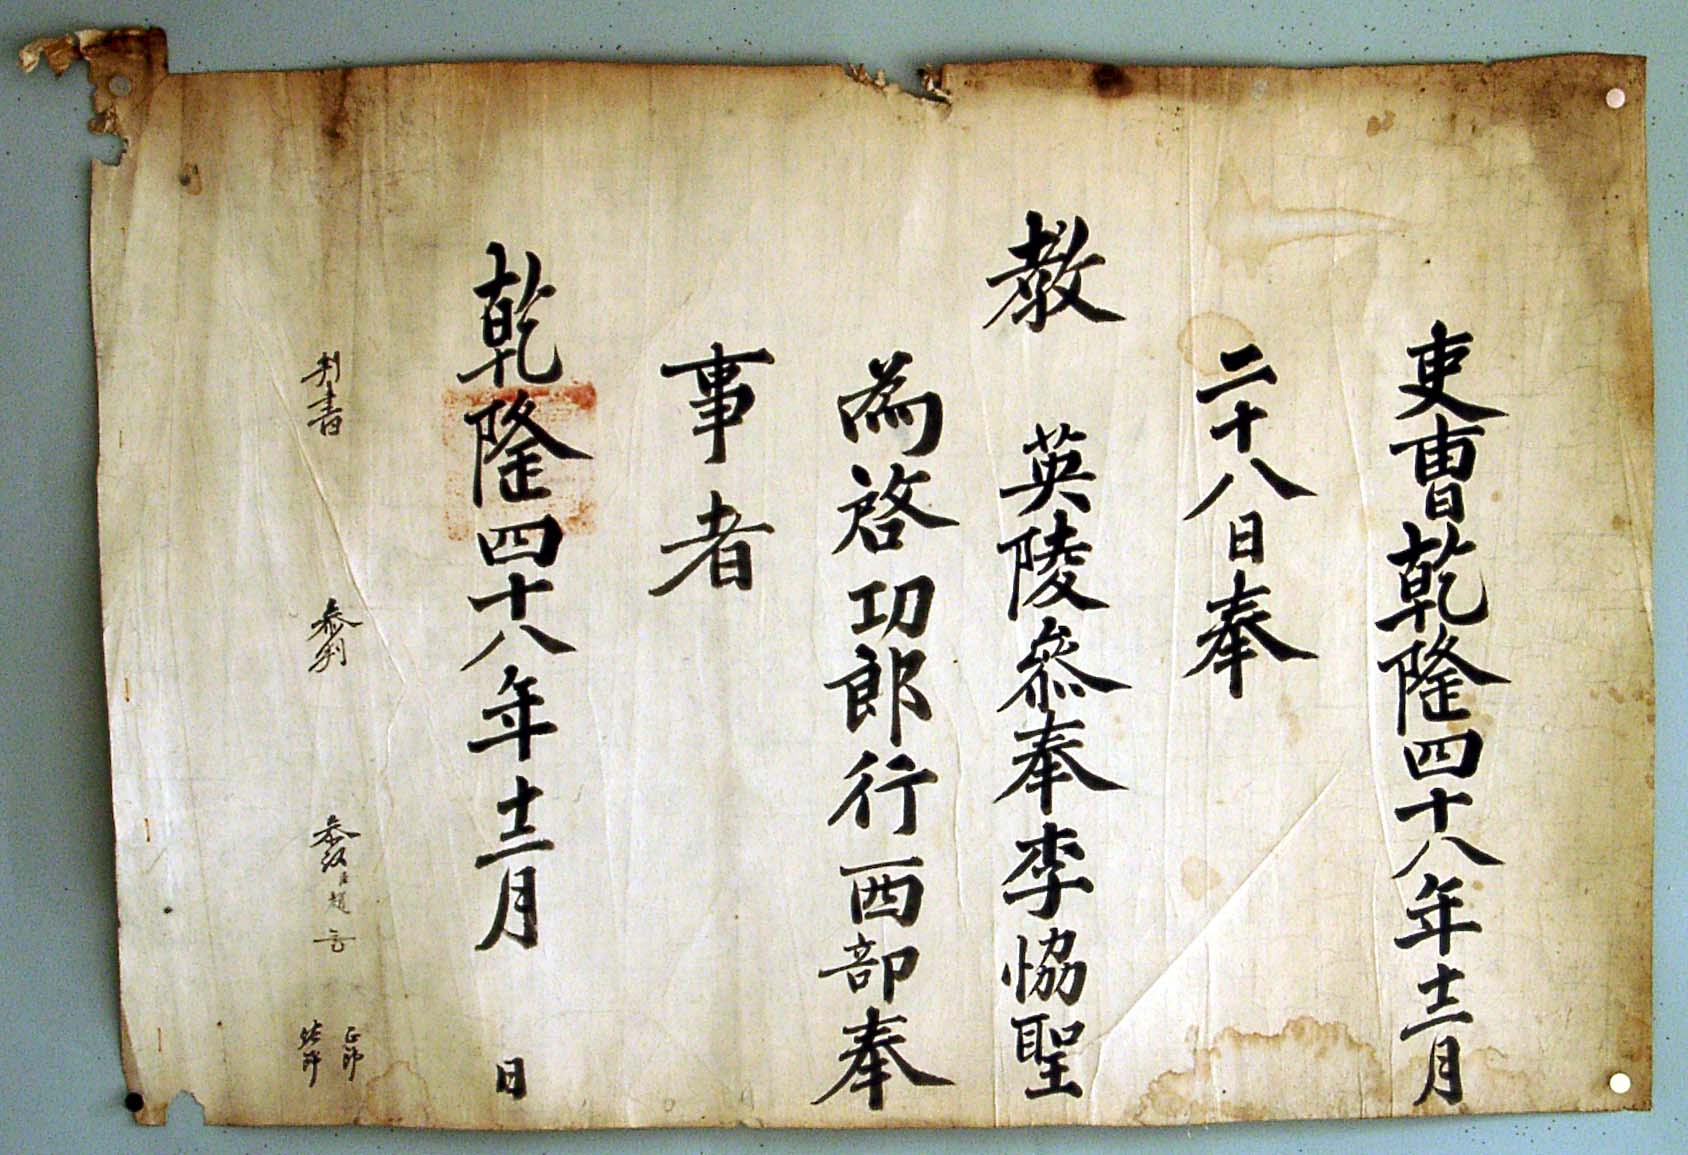 吏曺乾隆四十八年十二月
二十八日奉
教 英陵參奉李恊聖
為啓功郎行西部奉
事者
乾隆四十八年十二月 日
判書 參判 參議臣趙 正郎
佐郎